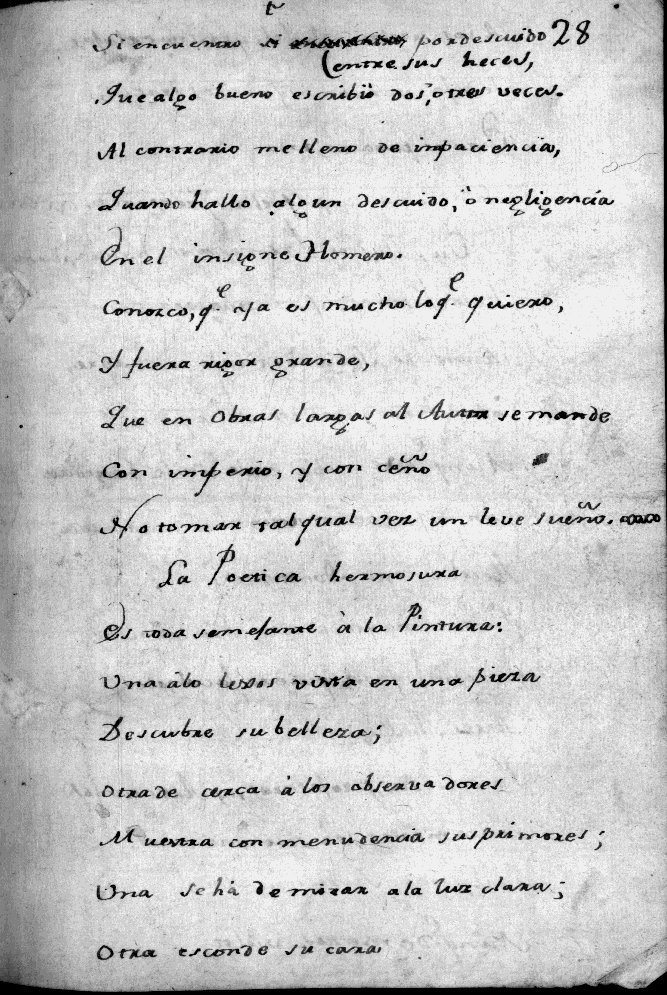 28
Si encuentro si por descuido
(entre sus heces,
Que algo bueno escribiò dos, ò tres veces.
Al contrario me lleno de impaciencia,
Quando hallo algun descuido, ò negligencía
En el insigne Homero.
Conozco, q.e ya es mucho lo q.e quiero,
Y fuera rigor grande,
Que en Obras largas al Autor se mande
Con imperio, y con ceño
No tomar tal qual vez un leve sueño.
La Poetica hermosura
Es toda semejante à la Pintura:
Una à lo lexos vista en una pieza
Descubre su belleza;
Otra de cerca à los observadores
Muestra con menudencia sus primores;
Una se há de mirar a la luz clara;
Otra esconde su cara